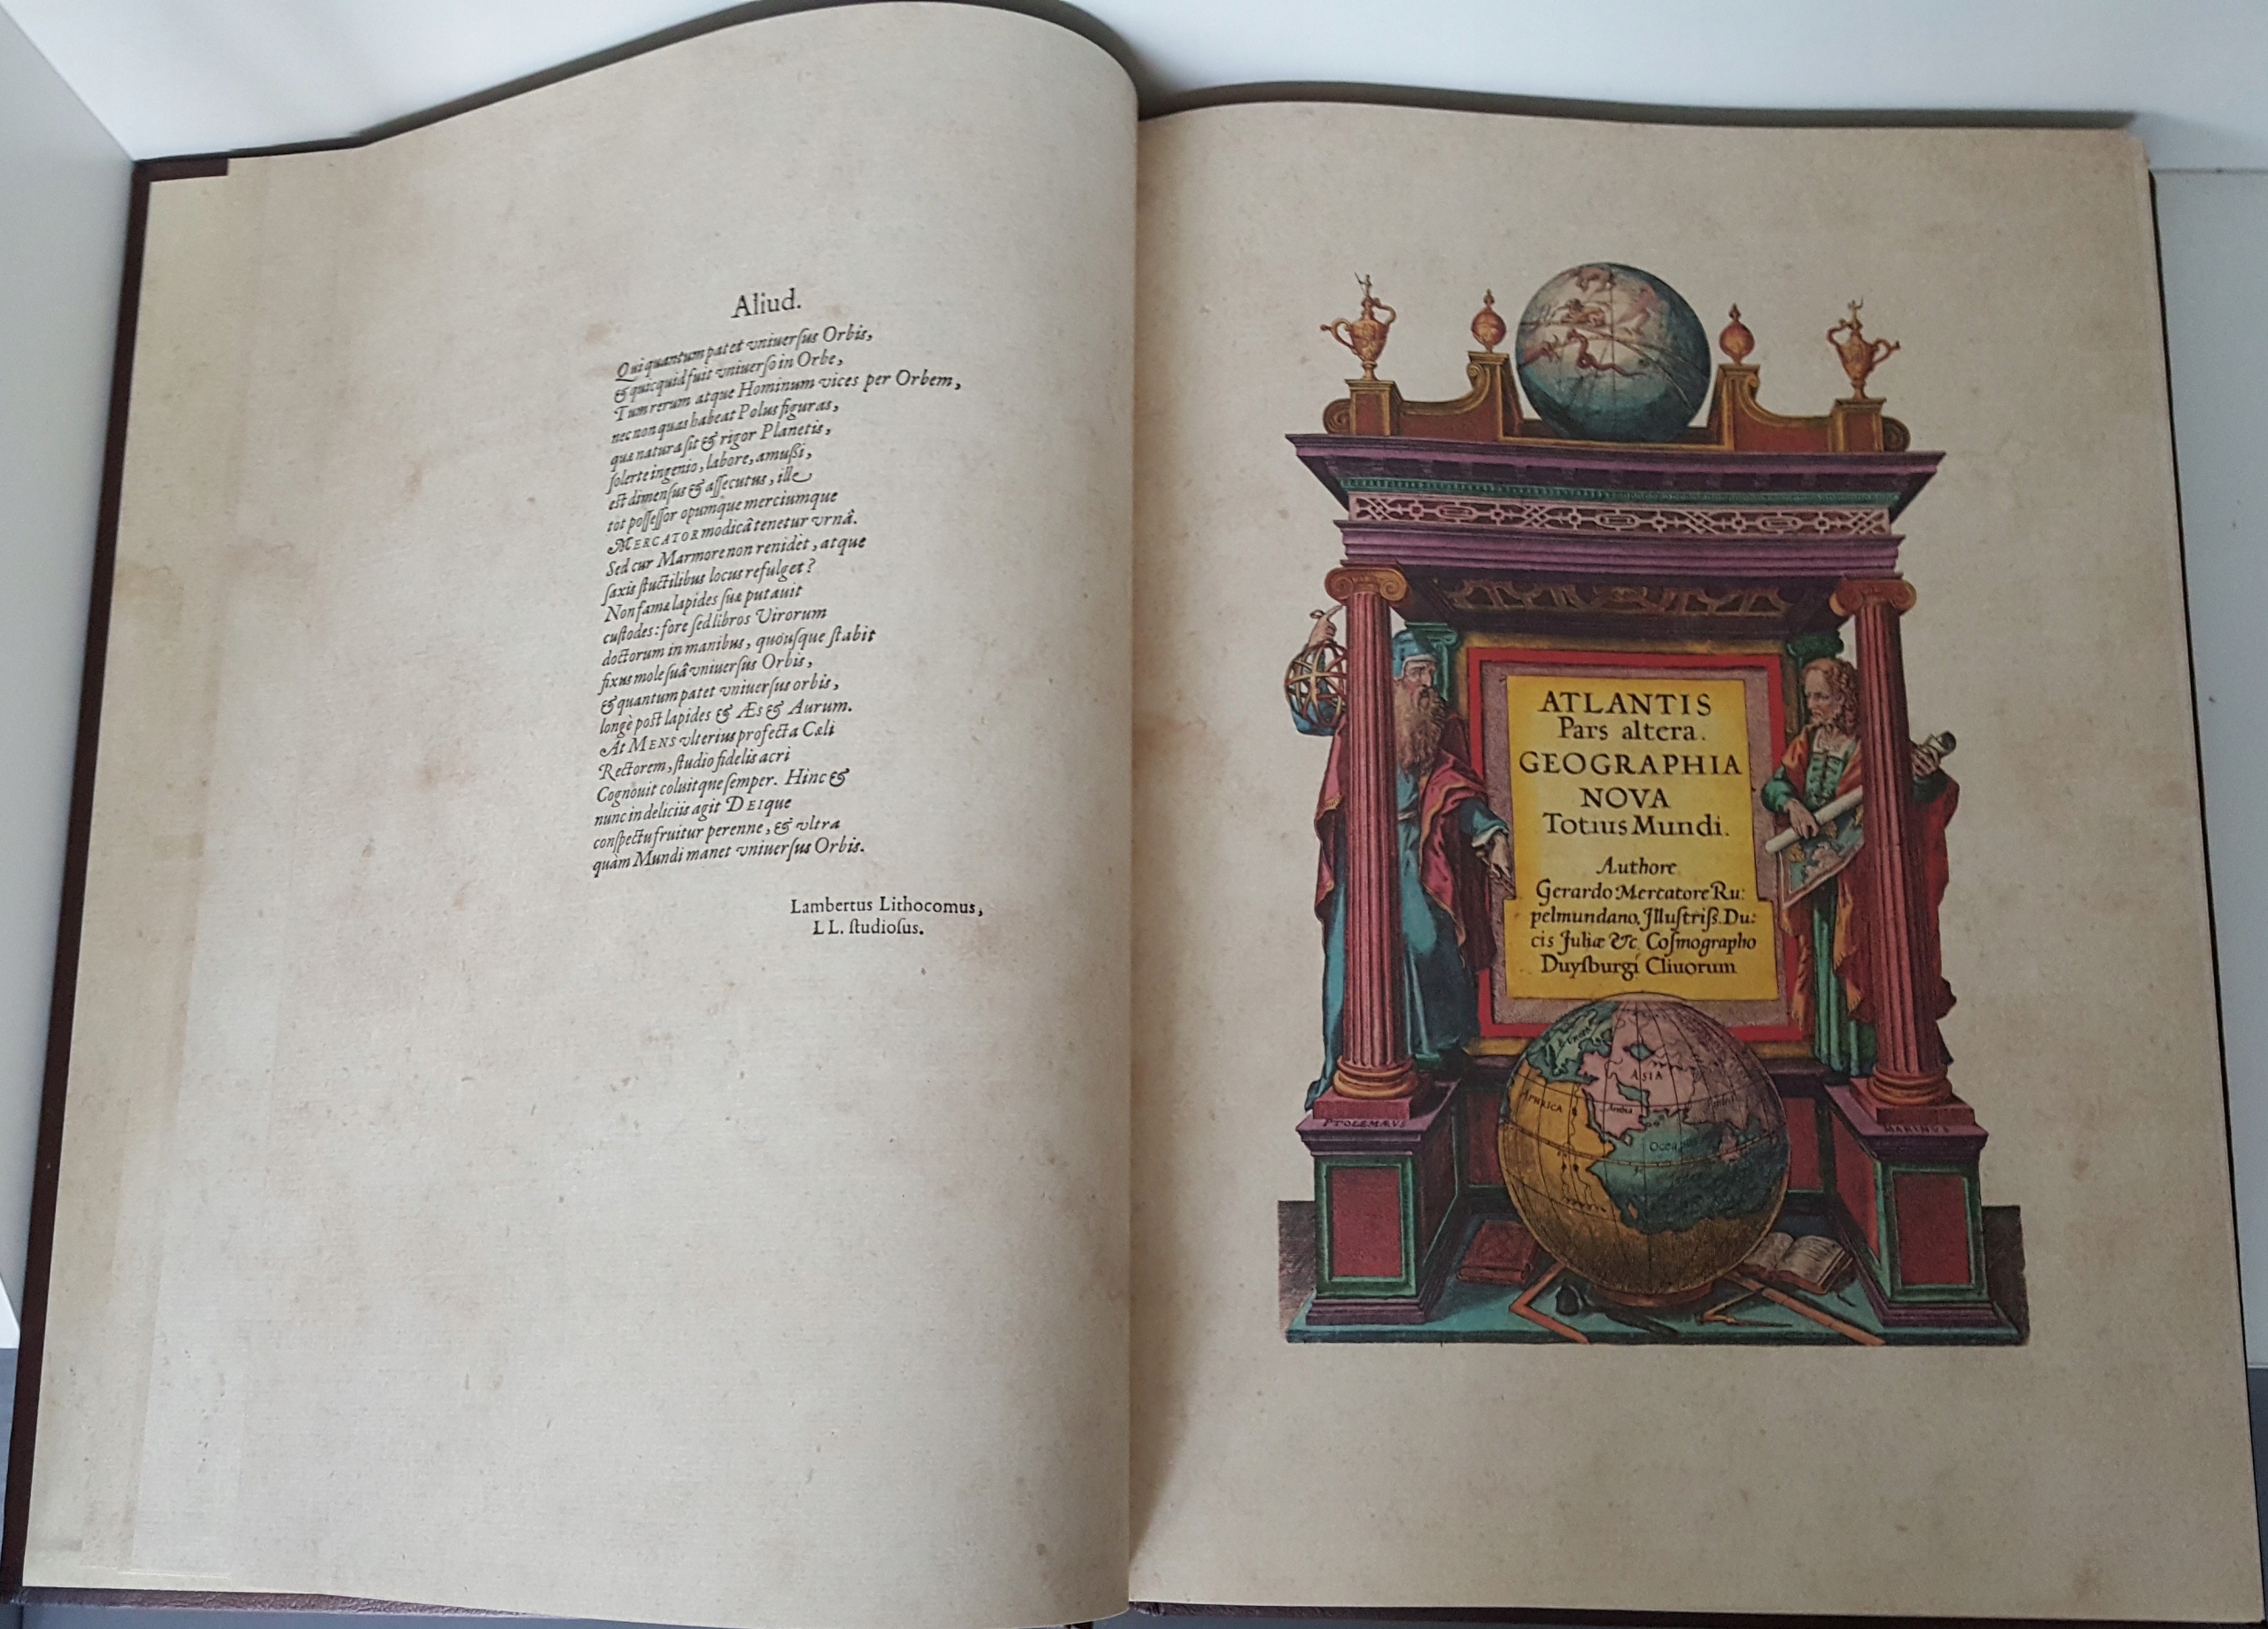 Aliud.
Qui quantum patet vniuerſus Orbis,
& quicquid fuit vniuerſo in Orbe,
Tum rerum atque Hominum vices per Orbem,
nec non quas habeat Polus figuras,
quæ natura ſit & rigor Planetis,
ſolerte ingenio, labore, amuſsi,
eſt dimenſus & aſſecutus, ille
tot poſſeſſor opumque merciumque
MERCATOR modicâ tenetur vrnâ.
Sed cur Marmore non renidet, atque
ſaxis ſtuctilibus locus refulget?
Non famæ lapides ſuæ putauit
cuſtodes: fore ſed libros Virorum
doctorum in manibus, quouſque ſtabit
fixus mole ſuâ vniuerſus Orbis,
& quantum patet vniuerſus orbis,
longè poſt lapides & Æs & Aurum.
At MENS vlterius profecta Cæli
Rectorem, ſtudio fidelis acri
Cognouit coluitque ſemper. Hinc &
nunc in deliciis agit DEIque
conſpectu fruitur perenne, & vltra
quàm Mundi manet vniuerſus Orbis.
Lambertus Lithocomus,
LL. ſtudioſus.
ATLANTIS
Pars altera.
GEOGRAPHIA
NOVA
Totius Mundi.
Authore
Gerardo Mercatore Ru:
pelmundano, Jlluſtriſs. Du:
cis Juliæ &c. Coſmographo
Duyſburgi Cliuorum
Europa
ASIA
APHRICA
Arabia
Oceanus
PTOLEMÆVS
MARINVS